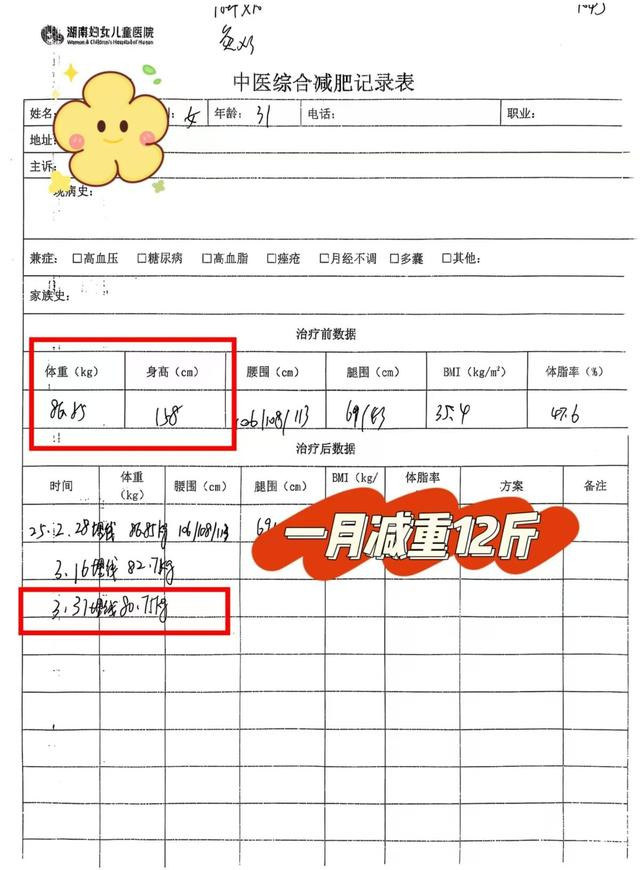 湖南妇女儿童医院
Women & Children's Hospital of Hunan
中医综合减肥记录表
姓名 女 年龄: 31 电话: 职业:
地址:
主诉:
现病史:
兼症: □高血压 □糖尿病 □高血脂 □痤疮 □月经不调 □多囊 □其他:
家族史:
治疗前数据
体重(kg) 身高(cm) 腰围(cm) 腿围(cm) BMI(kg/m²) 体脂率(%)
86.85 158 106/108/113 69/43 35.4 47.6
治疗后数据
时间 体重(kg) 腰围(cm) 腿围(cm) BMI(kg/ 体脂率 方案 备注
25.2.28埋线 86.85kg 106/108/113 69
一月减重12斤
3.16埋线 82.7kg
3.31埋线 80.75kg